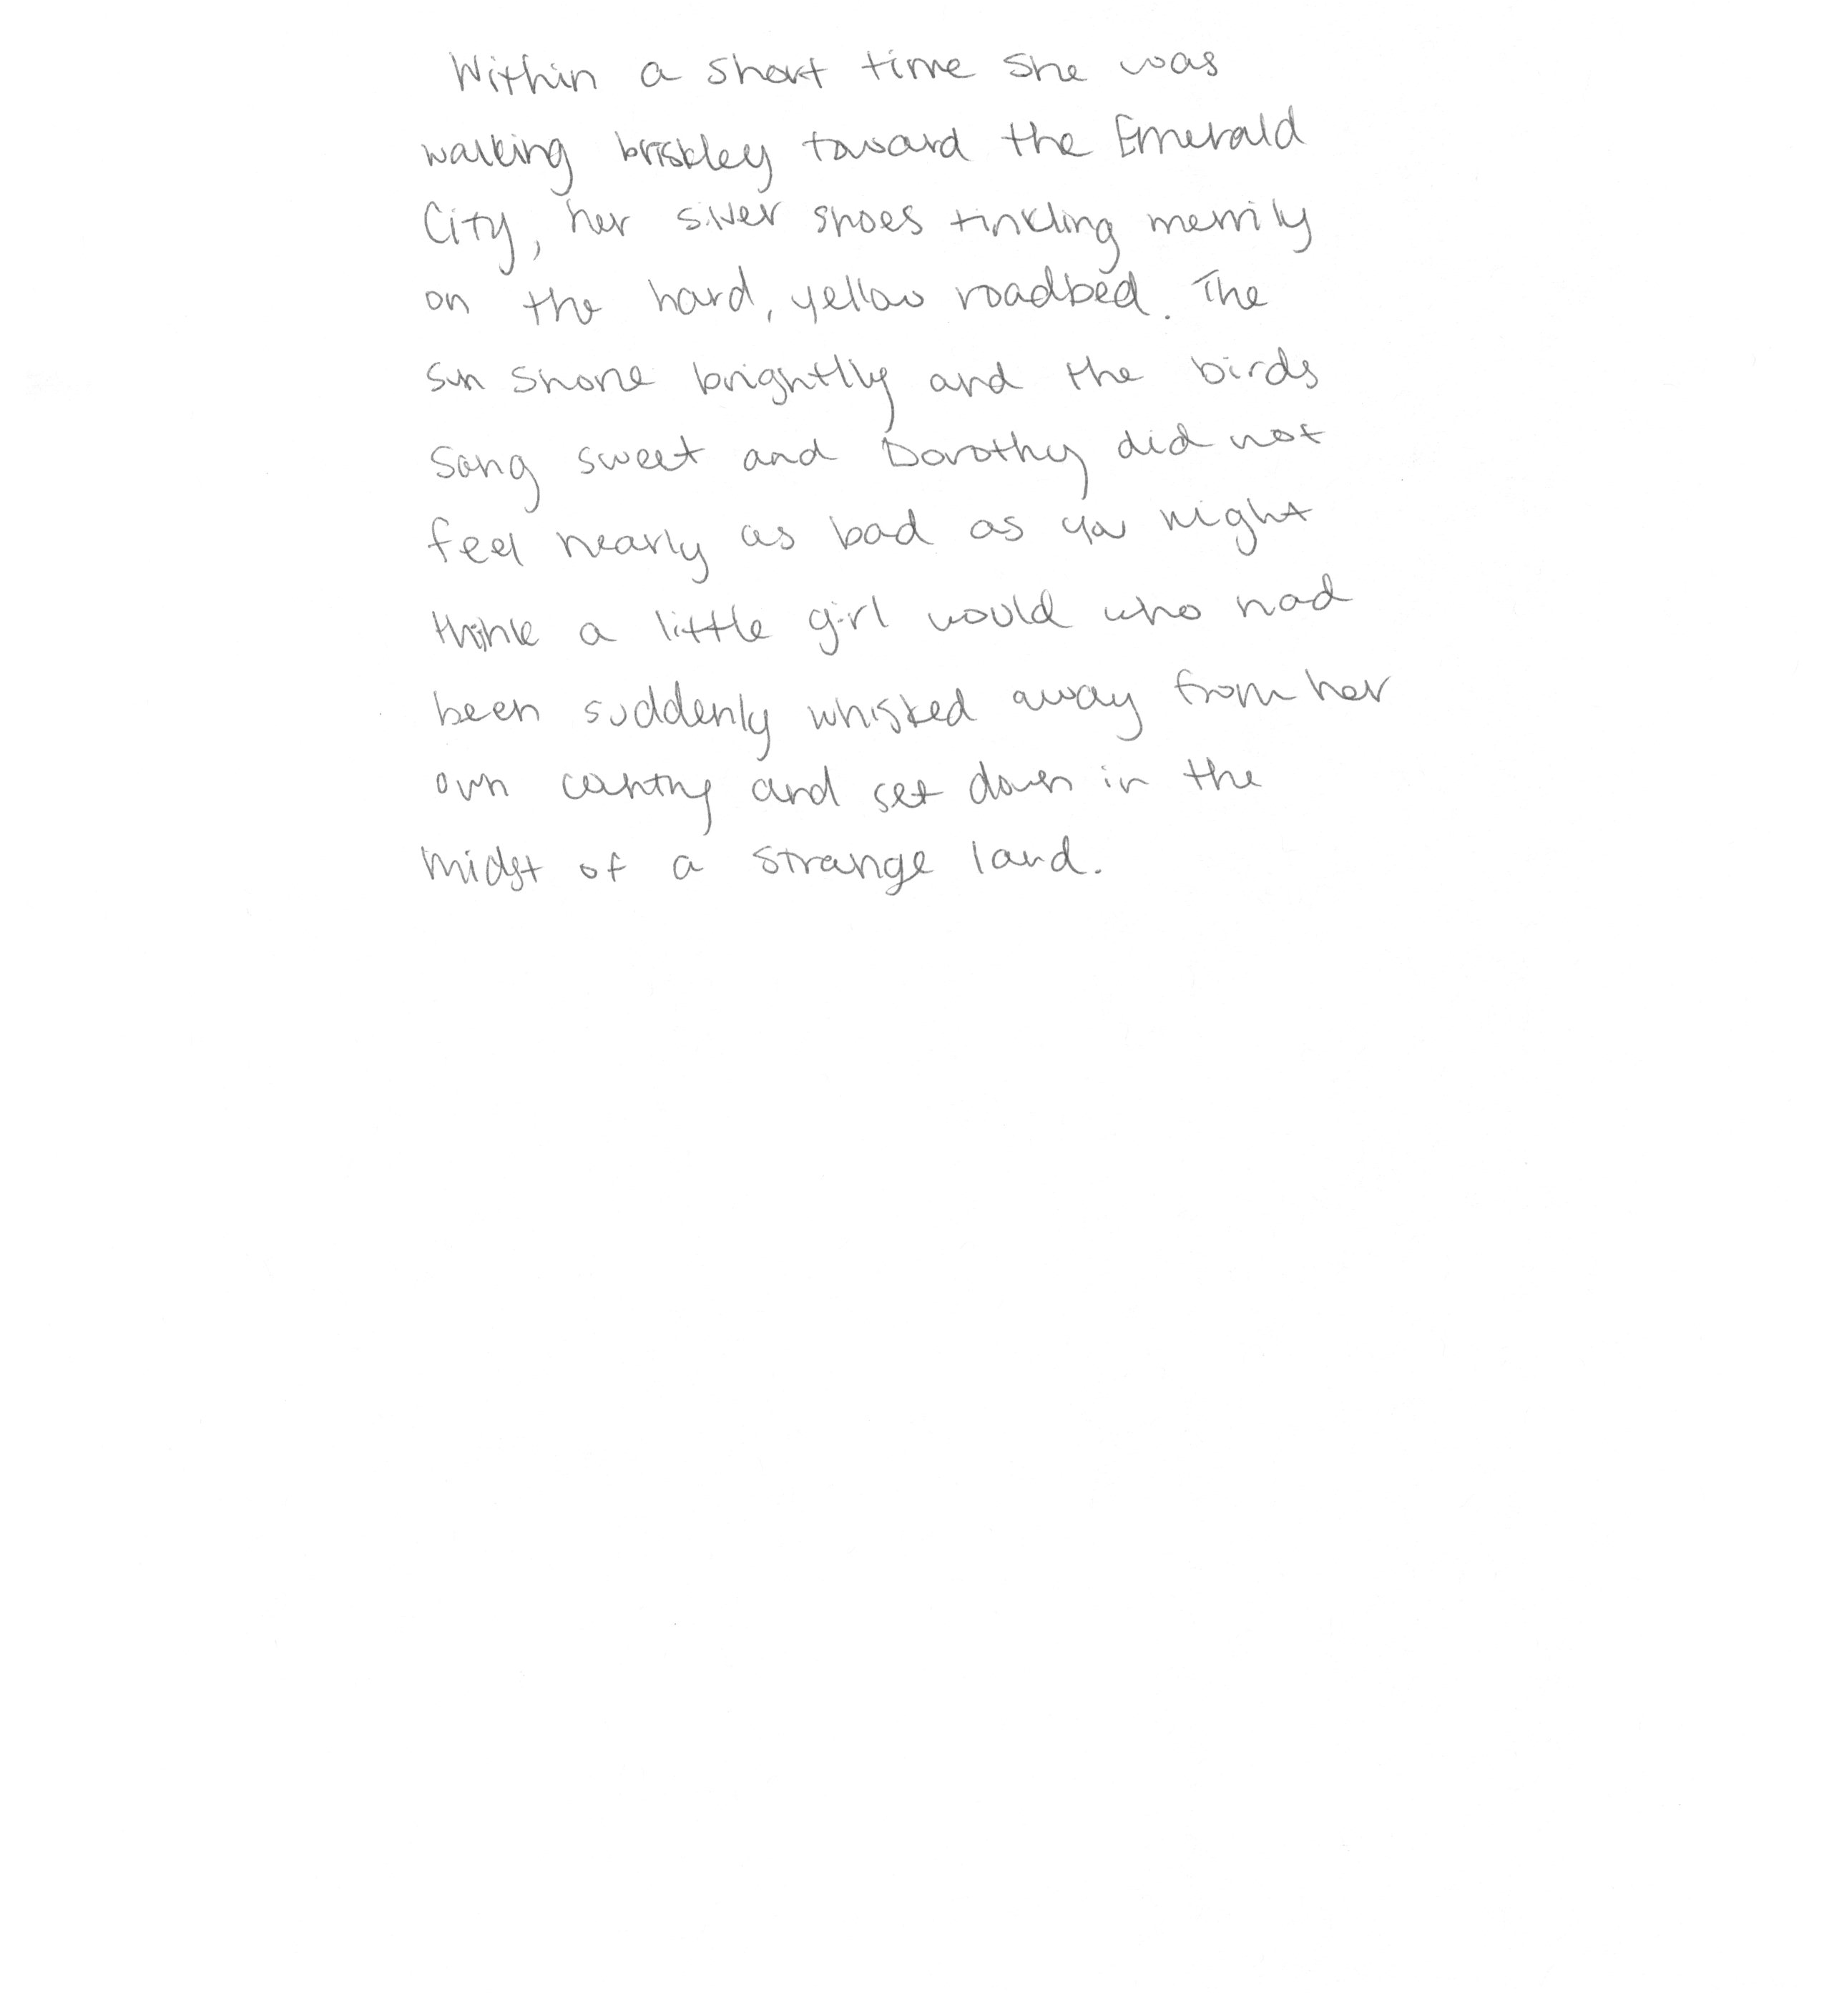 Within a short time she was
walking briskley toward the Emerald
City, her silver shoes tinkling merrily
on the hard, yellow roadbed. The
sun shone brightlly and the birds
sang sweet and Dorothy did not
feel nearly as bad as you might
think a little girl would who had
been suddenly whisked away from her
own country and set down in the
midst of a strange land.